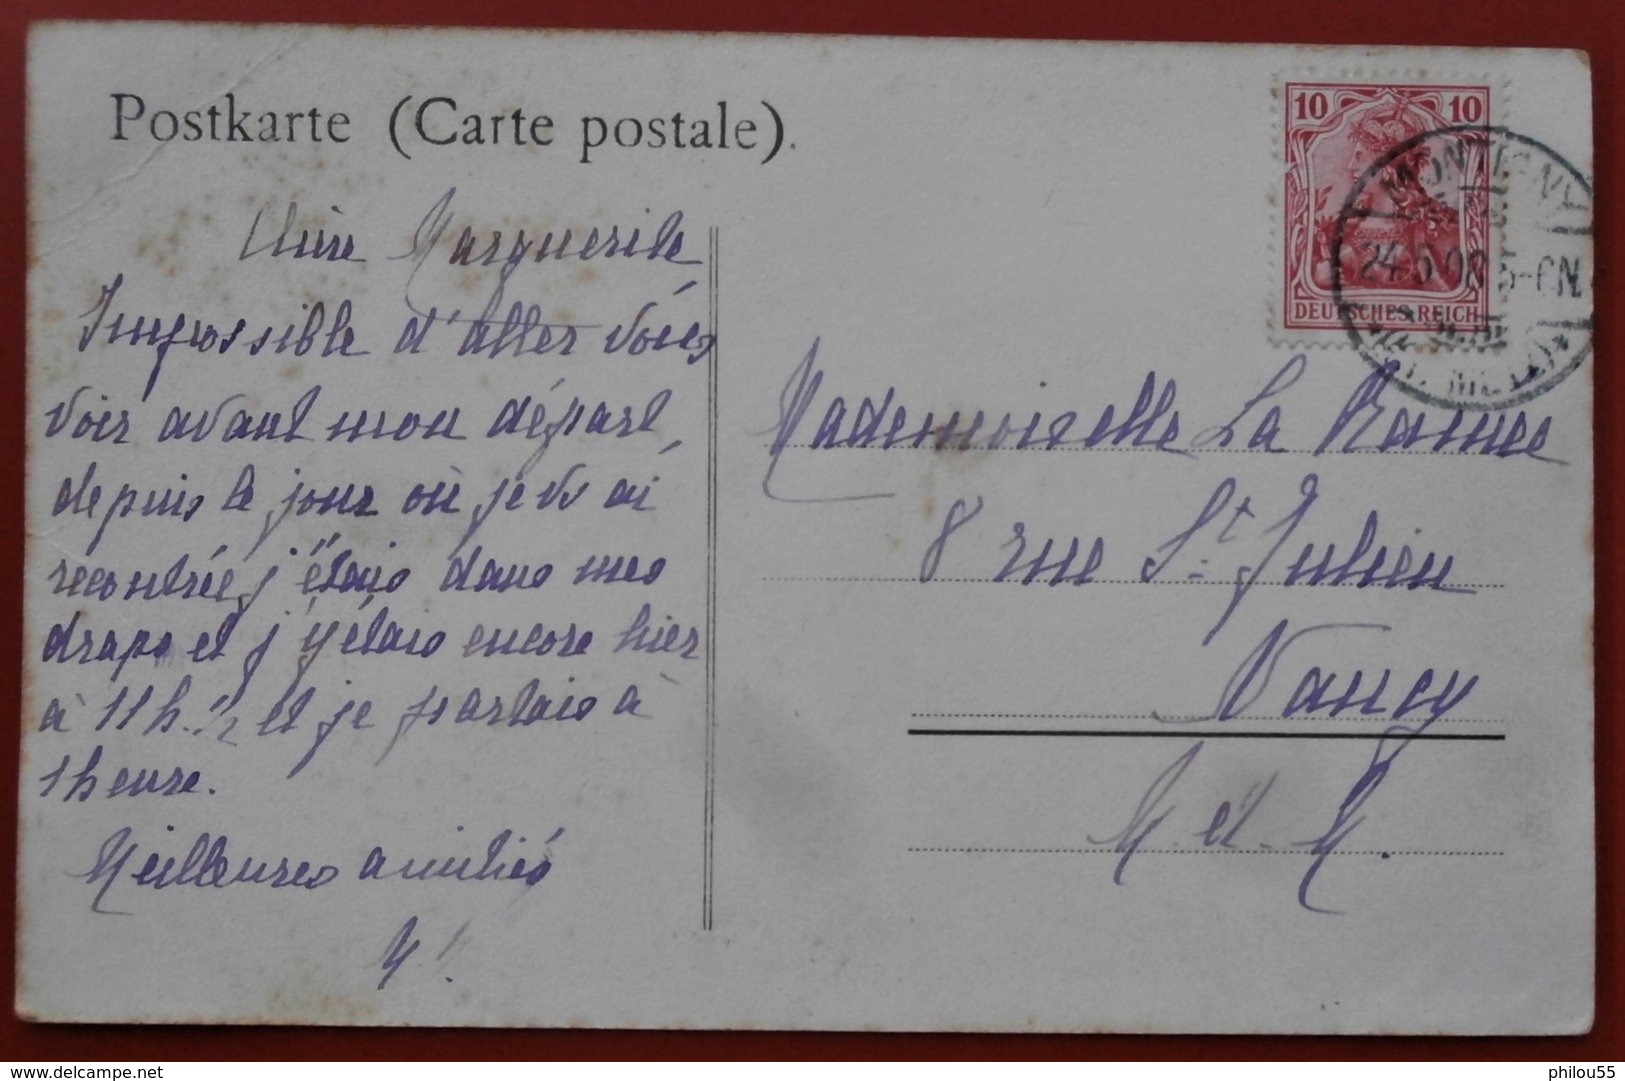 Postkarte (Carte postale).
Chère Marguerite
Impossible d'aller vous
voir avant mon départ,
depuis le jour où je vs ai
recontrée j'étais dans mes
draps et j'y étais encore hier
à 11h. 1/2 et je partais à
1 heure.
Meilleures amitiés
10 10
DEUTSCHES REICH
MONTIGNY
24.6.08 5-6N.
Mademoiselle La Ramée
8 rue St Julien
Nancy
M. et. M.
delcampe.net
philou55